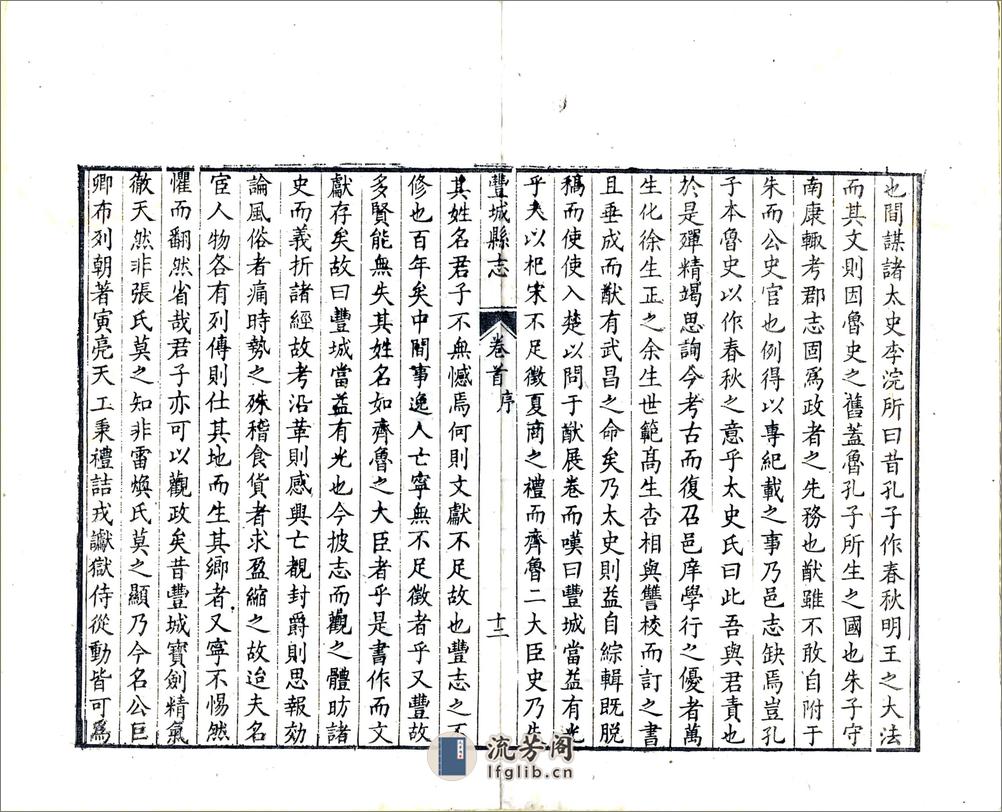 也間謀諸太史李浣所曰昔孔子作春秋明王之大法
而其文則因魯史之舊蓋魯孔子所生之國也朱子守
南康輙考郡志固爲政者之先務也猷雖不敢自附于
朱而公史官也例得以專紀載之事乃邑志缺焉豈孔
子本魯史以作春秋之意乎太史氏曰此吾與君責也
於是殫精竭思論今考古而復召邑庠學行之優者萬
生化徐生正之余生世範髙生杏相與讐校而訂之書
且垂成而猷有武昌之命矣乃太史則益自綜輯既脱
稿而使使入楚以問于猷展卷而嘆曰豐城當益有光
乎夫以杞宋不足徵夏商之禮而齊魯二大臣史乃失
豐城縣志
卷首
序
十二
其姓名君子不無憾焉何則文獻不足故也豐志之不
修也百年矣中間事逸人亡寧無不足徵者乎又豐故
多賢能無失其姓名如齊魯之大臣者乎是書作而文
獻存矣故曰豐城當益有光也今披志而觀之體昉諸
史而義折諸經故考沿革則感興亡覩封爵則思報効
論風俗者痛時勢之殊稽食貨者求盈縮之故迨夫名
宦人物各有列傳則仕其地而生其鄉者又寧不惕然
懼而翻然省哉君子亦可以觀政矣昔豐城寶劍精氣
徹天然非張氏莫之知非雷煥氏莫之顯乃今名公巨
卿布列朝著寅亮天工秉禮詰戎讞獄侍從動皆可爲
流芳阁
lfglib.cn